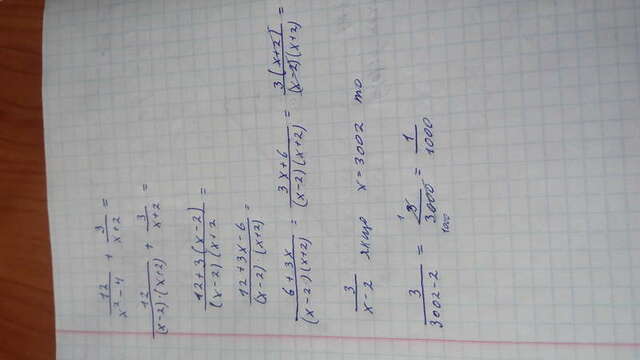 12/(x²-4) + 3/(x+2) =
12/((x-2)·(x+2)) + 3/(x+2) =
(12+3(x-2))/((x-2)(x+2 =
(12+3x-6)/((x-2)·(x+2)) =
(6+3x)/((x-2)(x+2)) = (3x+6)/((x-2)(x+2)) = (3(x+2))/((x-2)(x+2)) =
3/(x-2) якщо x=3002 то
3/(3002-2) = 3/3000 1 1000 = 1/1000